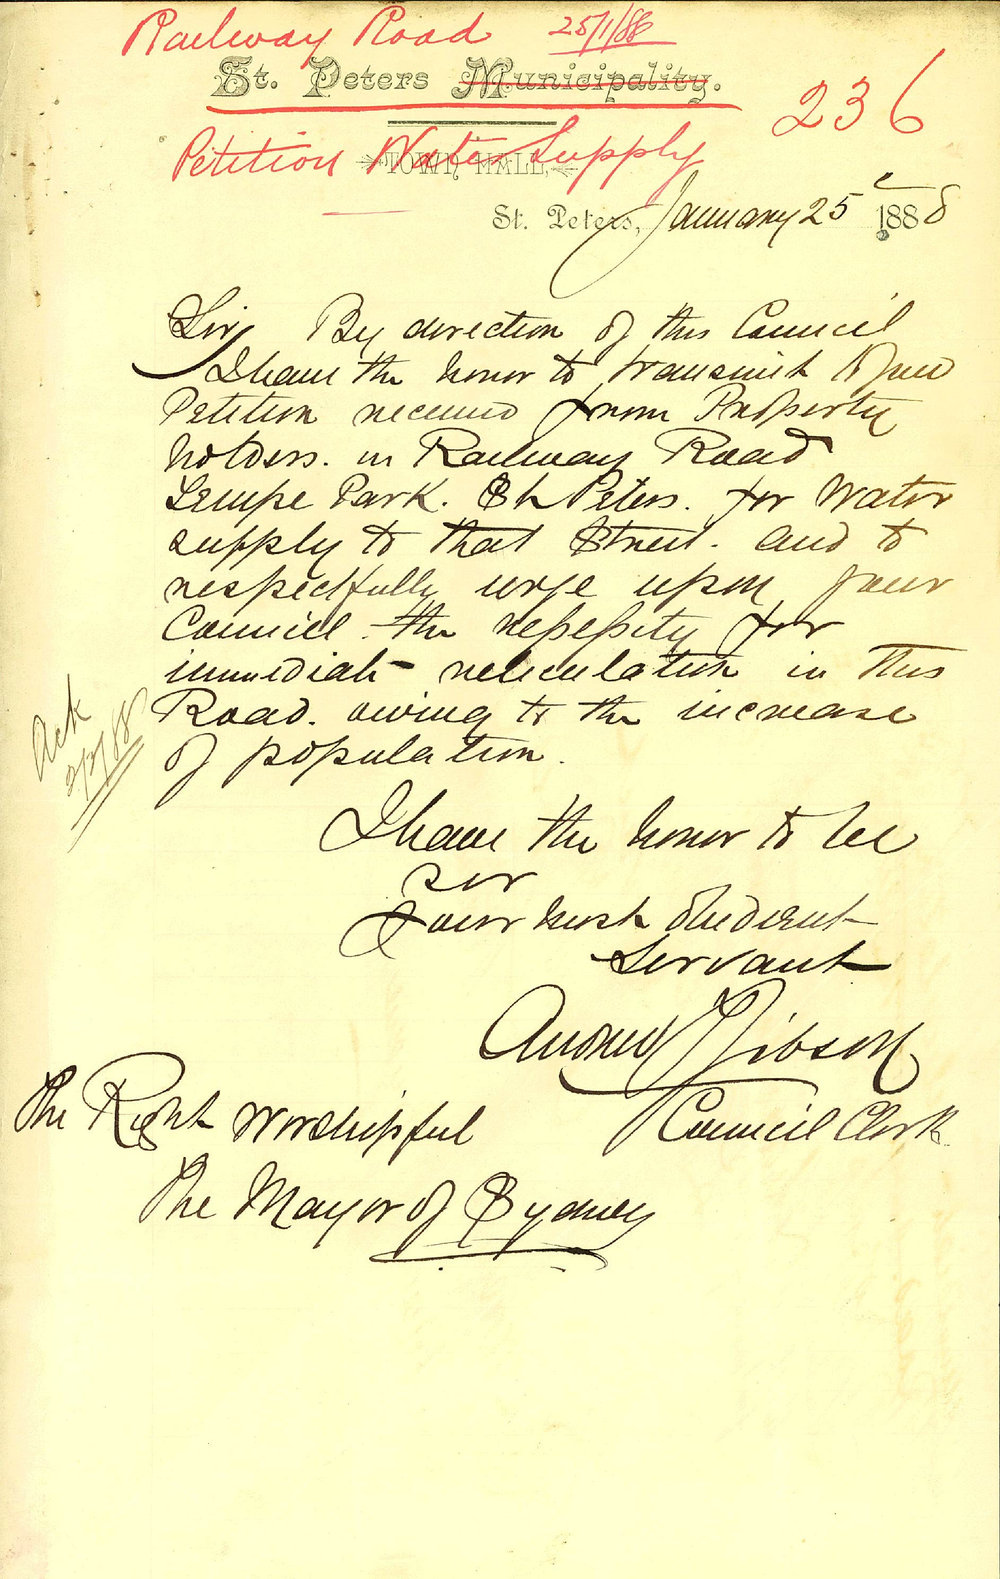 Railway Road 25/1/88
St. Peters Municipality.
236
Petition Water Supply
TOWN HALL,
St. Peters, January 25 1888
Sir, By direction of this Council
I have the honor to transmit to you
Petition received from Property
holders. in Railway Road
Tempe Park. St Peters. for Water
supply to that Street. and to
respectfully urge upon your
Council the necessity for
immediate reticulation in this
Road. owing to the increase
of population.
Ack
2/2/88
I have the honor to be
Sir
Your most obedient
Servant
Andrew Gibson
Council Clerk
The Right Worshipful
The Mayor of Sydney